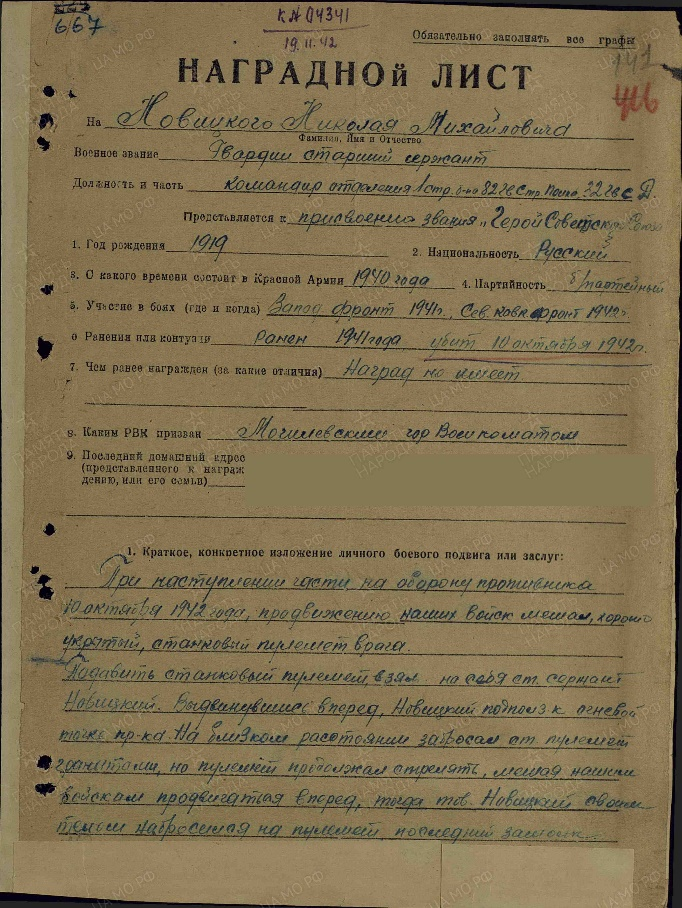 667
КА 04341
19.11.42
Обязательно заполнять все графы
142
НАГРАДНОЙ ЛИСТ
На Новицкого Николая Михайловича
Фамилия, Имя и Отчество
Военное звание Гвардии старший сержант
Должность и часть командир отделения 1 стр. б-на 82 гв Стр. Полка, 32 гв с Д.
Представляется к присвоению звания „Герой Советского Союза
1. Год рождения 1919 2. Национальность Русский
3. С какого времени состоит в Красной Армии 1940 года 4. Партийность б/партейный
5. Участие в боях (где и когда) Запад фронт 1941г., Сев. Кавк фронт 1942г.
6 Ранения или контузии Ранен 1941 года убит 10 октября 1942г.
7. Чем ранее награжден (за какие отличия) Наград не имеет
8. Каким РВК призван Могилевский гор Военкоматом
9. Последний домашний адрес
(представленного к награж
дению, или его семьи)
1. Краткое, конкретное изложение личного боевого подвига или заслуг:
При наступлении части на оборону противника
10 октября 1942 года, продвижению наших войск мешал, хорошо
укрытый, станковый пулемет врага.
Подавить станковый пулемет взял на себя ст. сержант
Новицкий. Выдвинувшись вперед, Новицкий подполз к огневой
точке пр-ка. На близком расстоянии забросал ст. пулемет
гранатами, но пулемет продолжал стрелять, мешая нашим
войскам продвигаться вперед, тогда тов. Новицкий своим
телом набросился на пулемет, последний замолк.